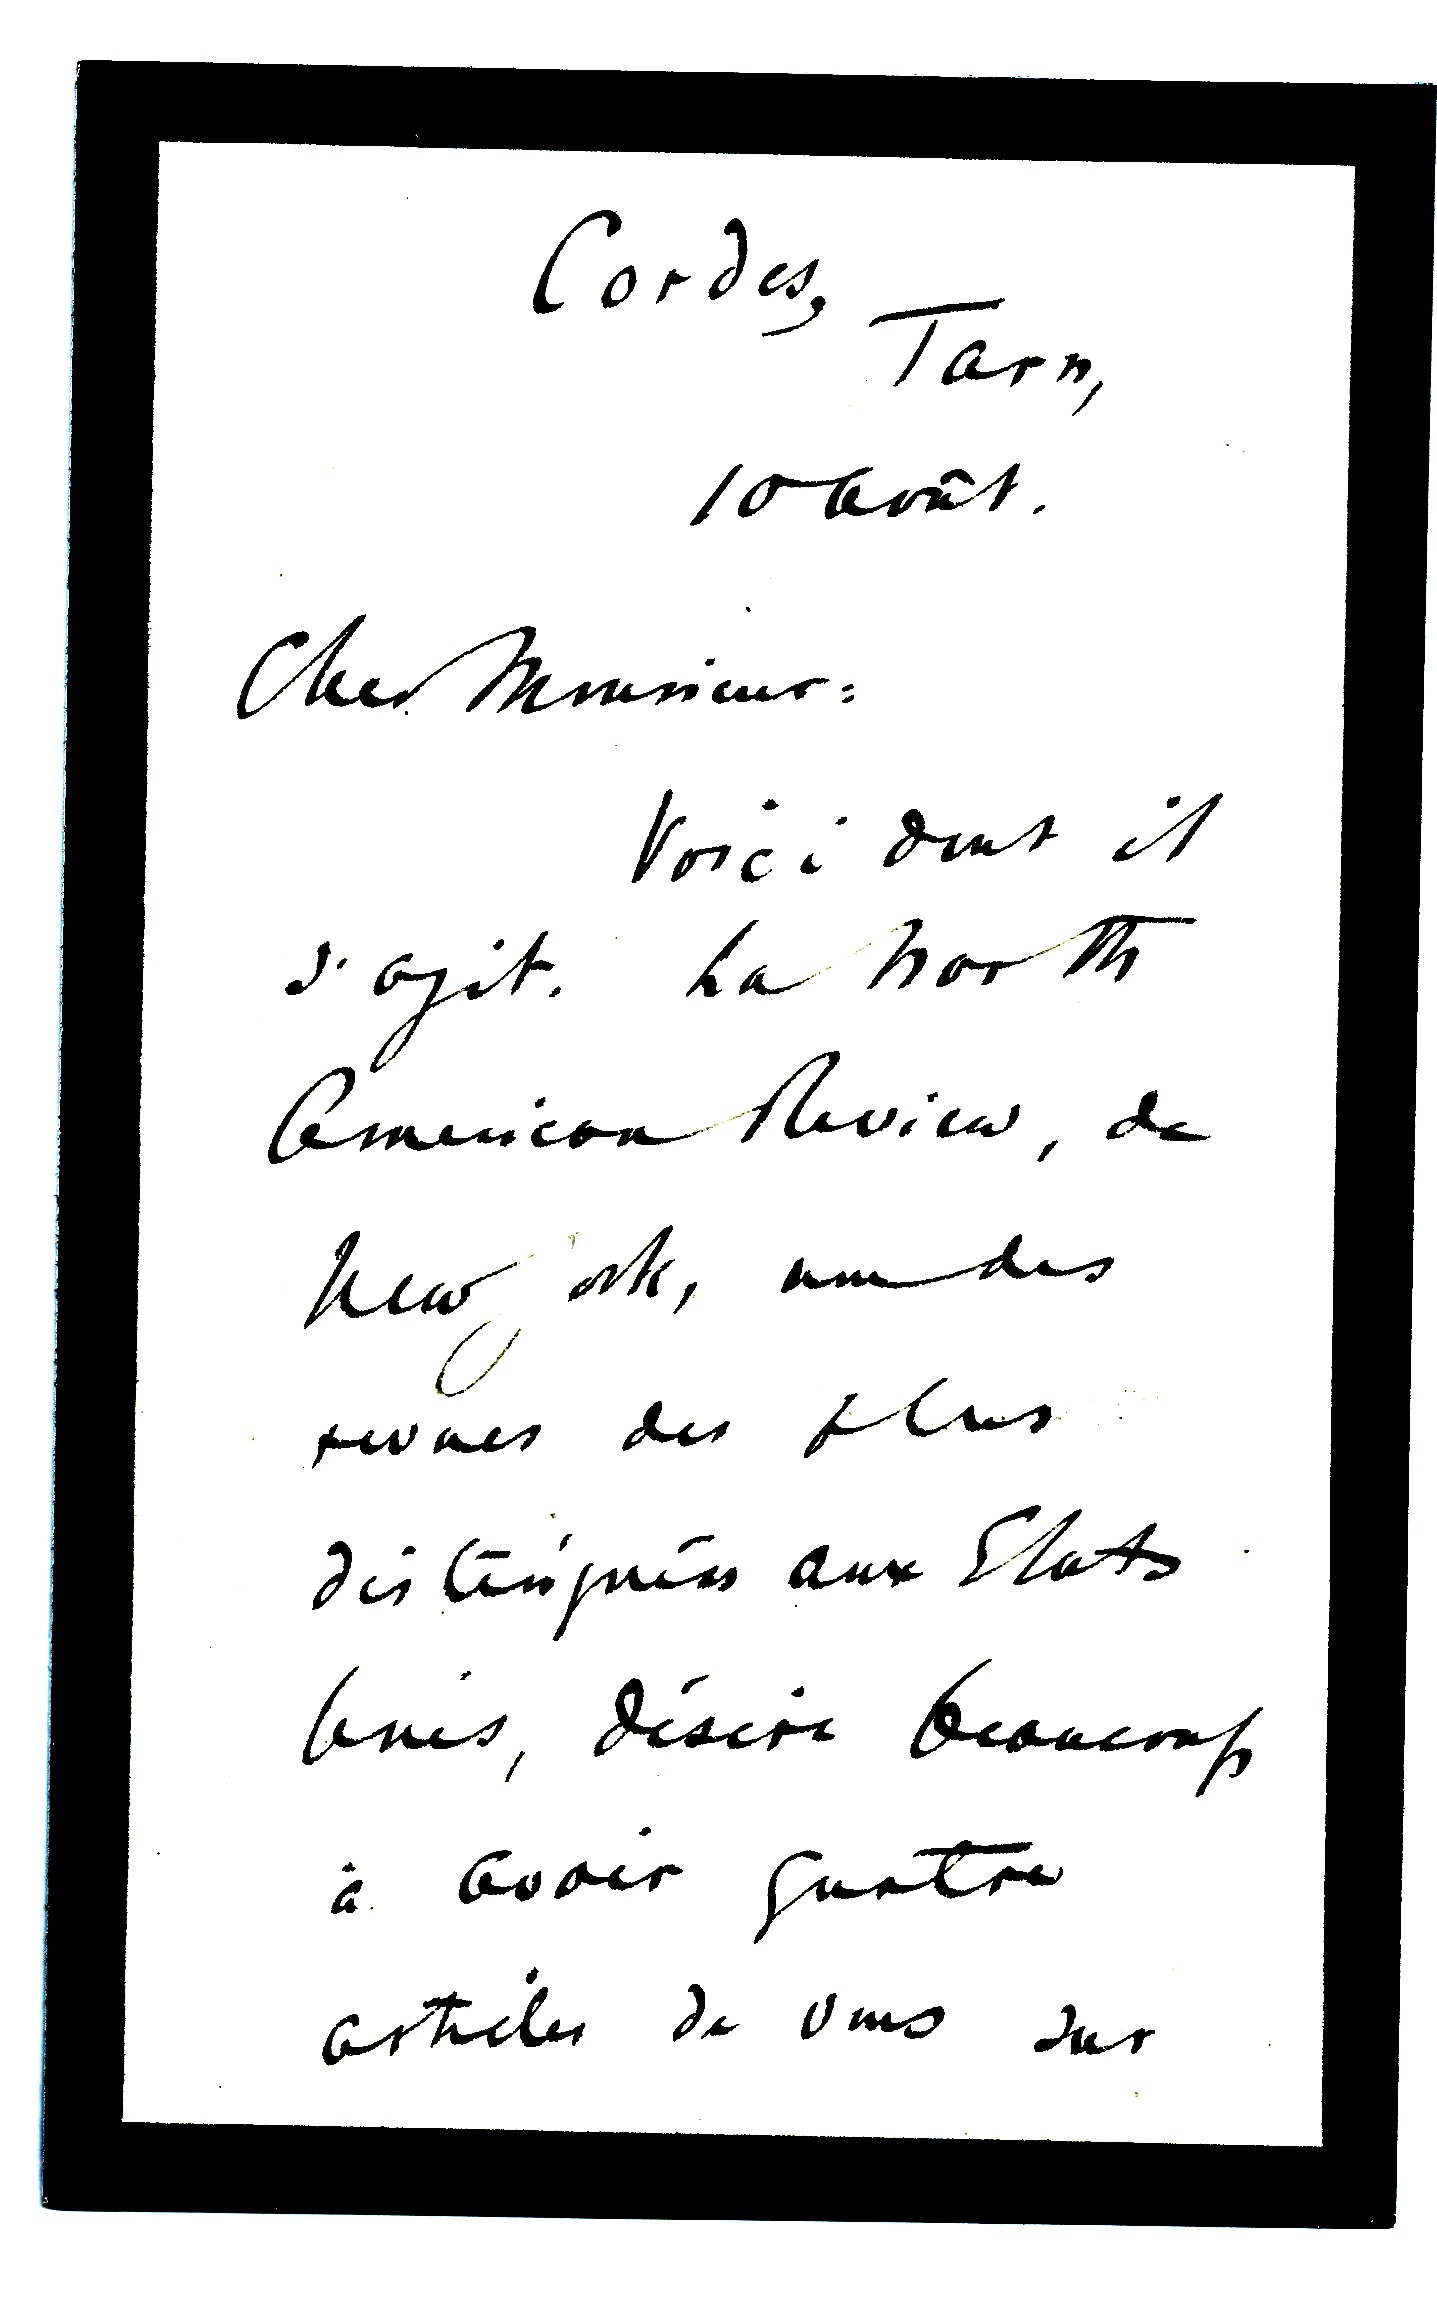 Cordes,
Tarn,
10 Août.
Cher Monsieur:
Voici dont il
s'agit. La North
American Review, de
New York, une des
revues des plus
distinguées aux Etats
Unis, désire beaucoup
à avoir quatre
articles de vous sur